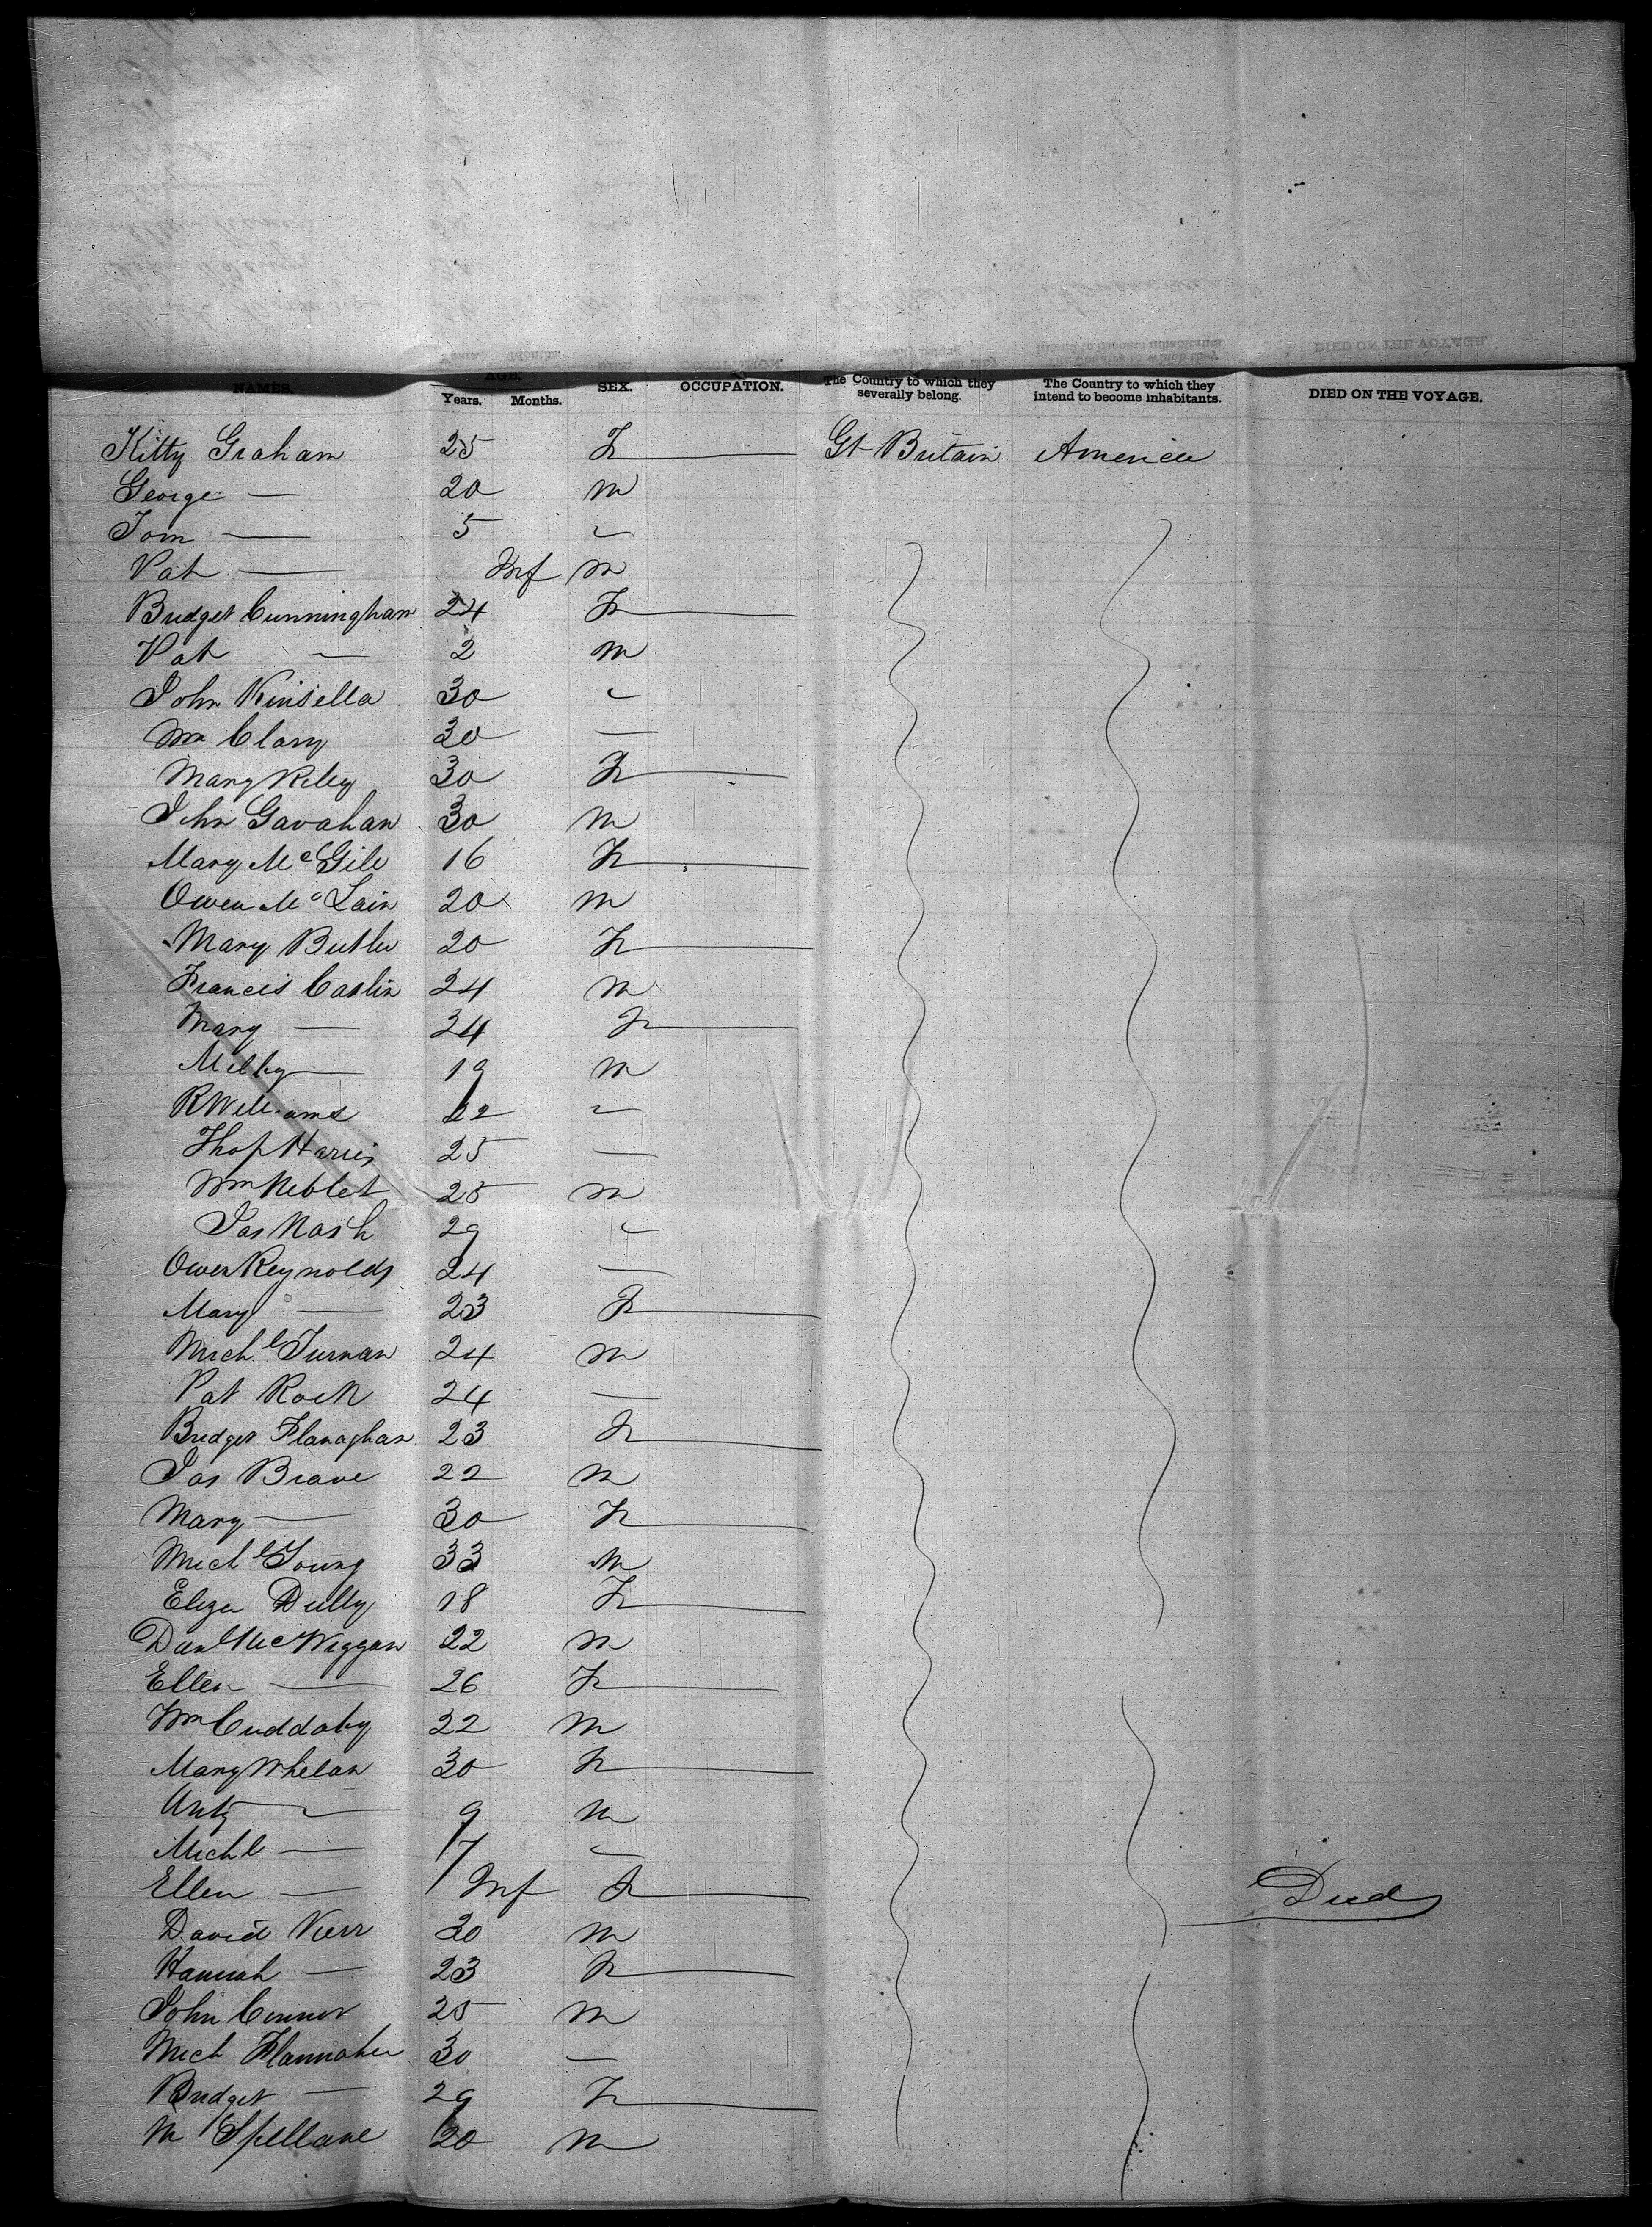 NAMES. AGE. SEX. OCCUPATION. The Country to which they severally belong. The Country to which they intend to become inhabitants. DIED ON THE VOYAGE.
Years. Months.
Kitty Graham 25 F — Gt Britain America
George — 20 M
Tom — 5 〃
Pat — Inf M
Bridget Cunningham 24 F —
Pat — 2 M
John Kinsella 30 〃
Wm Clary 30 —
Mary Riley 30 F —
John Gavahan 30 M
Mary McGill 16 F —
Owen McLain 20 M
Mary Butler 20 F —
Francis Caslin 24 M
Mary — 24 F —
Milky — 19 M
R Williams 22 〃
Thos Harris 25 —
Wm Neblet 25 M
Jas Nash 29 〃
Owen Reynolds 24 —
Mary — 23 F —
Michl Turnan 24 M
Pat Rock 24 —
Bridget Flanaghan 23 F —
Jas Brave 22 M
Mary — 30 F —
Michl Young 33 M
Eliza Dully 18 F —
Danl McWiggan 22 M
Ellen — 26 F —
Wm Cuddahy 22 M
Mary Whelan 30 F —
Anty — 9 M
Michl — 7 〃
Ellen — Inf F — Died
David Kerr 30 M
Hannah — 23 F —
John Connor 25 M
Mich Flannaher 30 —
Bridget — 29 F —
M Spellane 20 M